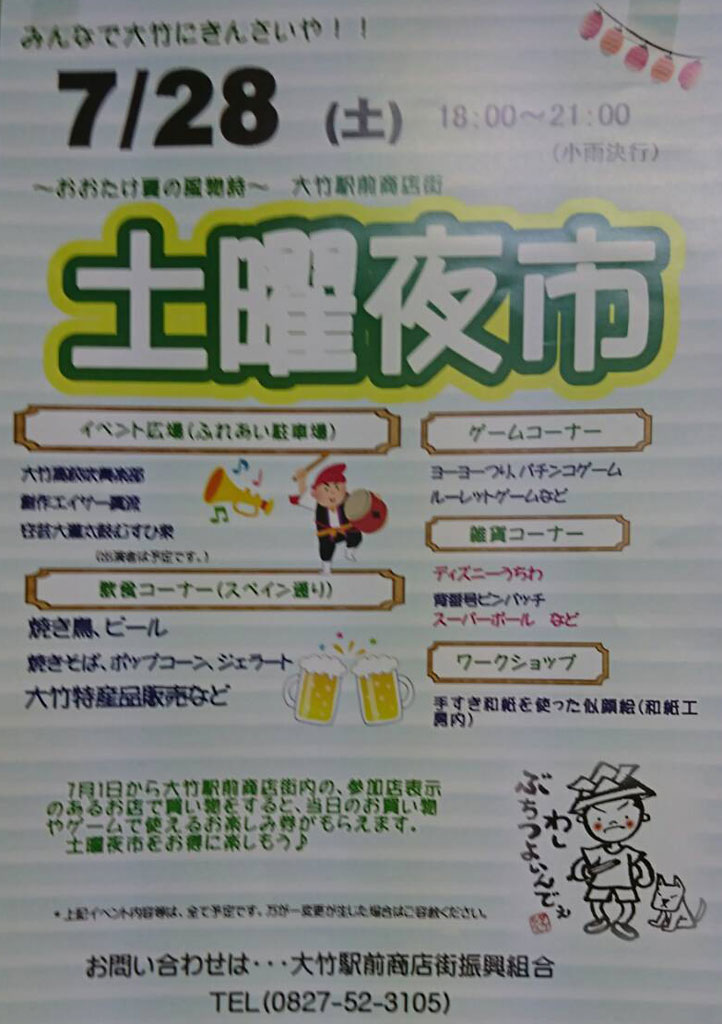 みんなで大竹にきんさいや！！
7/28 (土) 18:00～21:00
(小雨決行)
～おおたけ夏の風物詩～ 大竹駅前商店街
土曜夜市
イベント広場(ふれあい駐車場)
大竹高校吹奏楽部
創作エイサー
(出演者は予定です。)
飲食コーナー(スペイン通り)
焼き鳥、ビール
焼きそば、ポップコーン、ジェラート
大竹特産品販売など
ゲームコーナー
ヨーヨーつり、パチンコゲーム
ルーレットゲームなど
雑貨コーナー
ディズニーうちわ
背番号ピンバッチ
スーパーボール など
ワークショップ
手すき和紙を使った似顔絵(和紙工
房内)
7月1日から大竹駅前商店街内の、参加店表示
のあるお店で買い物をすると、当日のお買い物
やゲームで使えるお楽しみ券がもらえます。
土曜夜市をお得に楽しもう♪
わし
ぶちつよいんでぇ
*上記イベント内容等は、全て予定です。万が一変更が生じた場合はご容赦ください。
お問い合わせは･･･大竹駅前商店街振興組合
TEL(0827-52-3105)